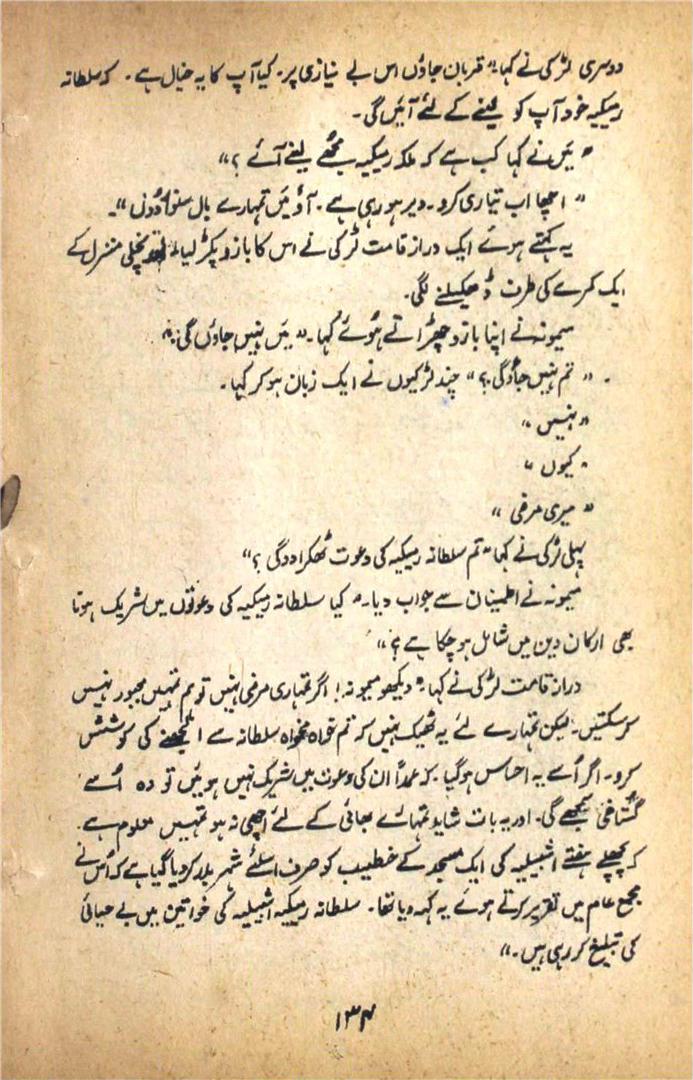 دوسری لڑکی نے کہا۔ "قربان جاؤں اس بے نیازی پر۔ کیا آپ کا یہ خیال ہے۔ کہ سلطانہ
رمیکیہ خود آپ کو لینے کے لئے آئیں گی۔
"میں نے کہا کب ہے کہ ملکہ رمیکیہ مجھے لینے آئے؟"
"اچھا اب تیاری کرو۔ دیر ہو رہی ہے۔ آؤ میں تمہارے بال سنوار دوں"۔
یہ کہتے ہوئے ایک دراز قامت لڑکی نے اس کا بازو پکڑ لیا۔ اور نچلی منزل کے
ایک کمرے کی طرف دھکیلنے لگی۔
میمونہ نے اپنا بازو چھڑاتے ہوئے کہا۔ "میں نہیں جاؤں گی۔"
"تم نہیں جاؤ گی؟" چند لڑکیوں نے ایک زبان ہو کر کہا۔
"نہیں"
"کیوں"
"میری مرضی"
پہلی لڑکی نے کہا "تم سلطانہ رمیکیہ کی دعوت ٹھکرا دو گی؟"
میمونہ نے اطمینان سے جواب دیا۔ "کیا سلطانہ رمیکیہ کی دعوتوں میں شریک ہونا
بھی ارکان دین میں شامل ہو چکا ہے؟"
دراز قامت لڑکی نے کہا۔ "دیکھو میمونہ! اگر تمہاری مرضی نہیں تو ہم تمہیں مجبور نہیں
کر سکتیں۔ لیکن تمہارے لئے یہ ٹھیک نہیں کہ تم خواہ مخواہ سلطانہ سے الجھنے کی کوشش
کرو۔ اگر اُسے یہ احساس ہو گیا۔ کہ عمداً ان کی دعوت میں شریک نہیں ہوئیں تو وہ اُسے
گستاخی سمجھے گی۔ اور یہ بات شاید تمہارے بھائی کے لئے اچھی نہ ہو تمہیں معلوم ہے۔
کہ پچھلے ہفتے اشبیلیہ کی ایک مسجد کے خطیب کو صرف اسلئے شہر بدر کر دیا گیا ہے کہ اُس نے
مجمع عام میں تقریر کرتے ہوئے یہ کہہ دیا تھا۔ سلطانہ رمیکیہ اشبیلیہ کی خواتین میں بے حیائی
کی تبلیغ کر رہی ہیں۔"
۱۳۴